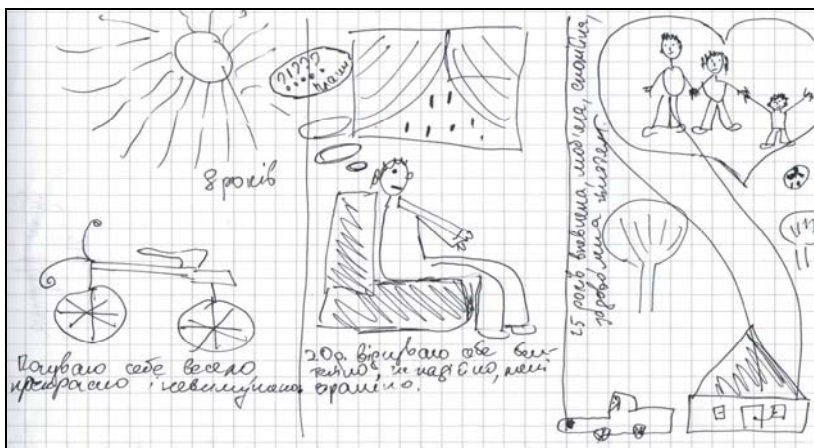 8 років
Почуваю себе весело
прекрасно і невимушено
?!???
плани
20 р. відчуваю себе бен-
тежно, не надійно, мені
страшно.
25 років впевнена, спокійна,
задоволена життям.